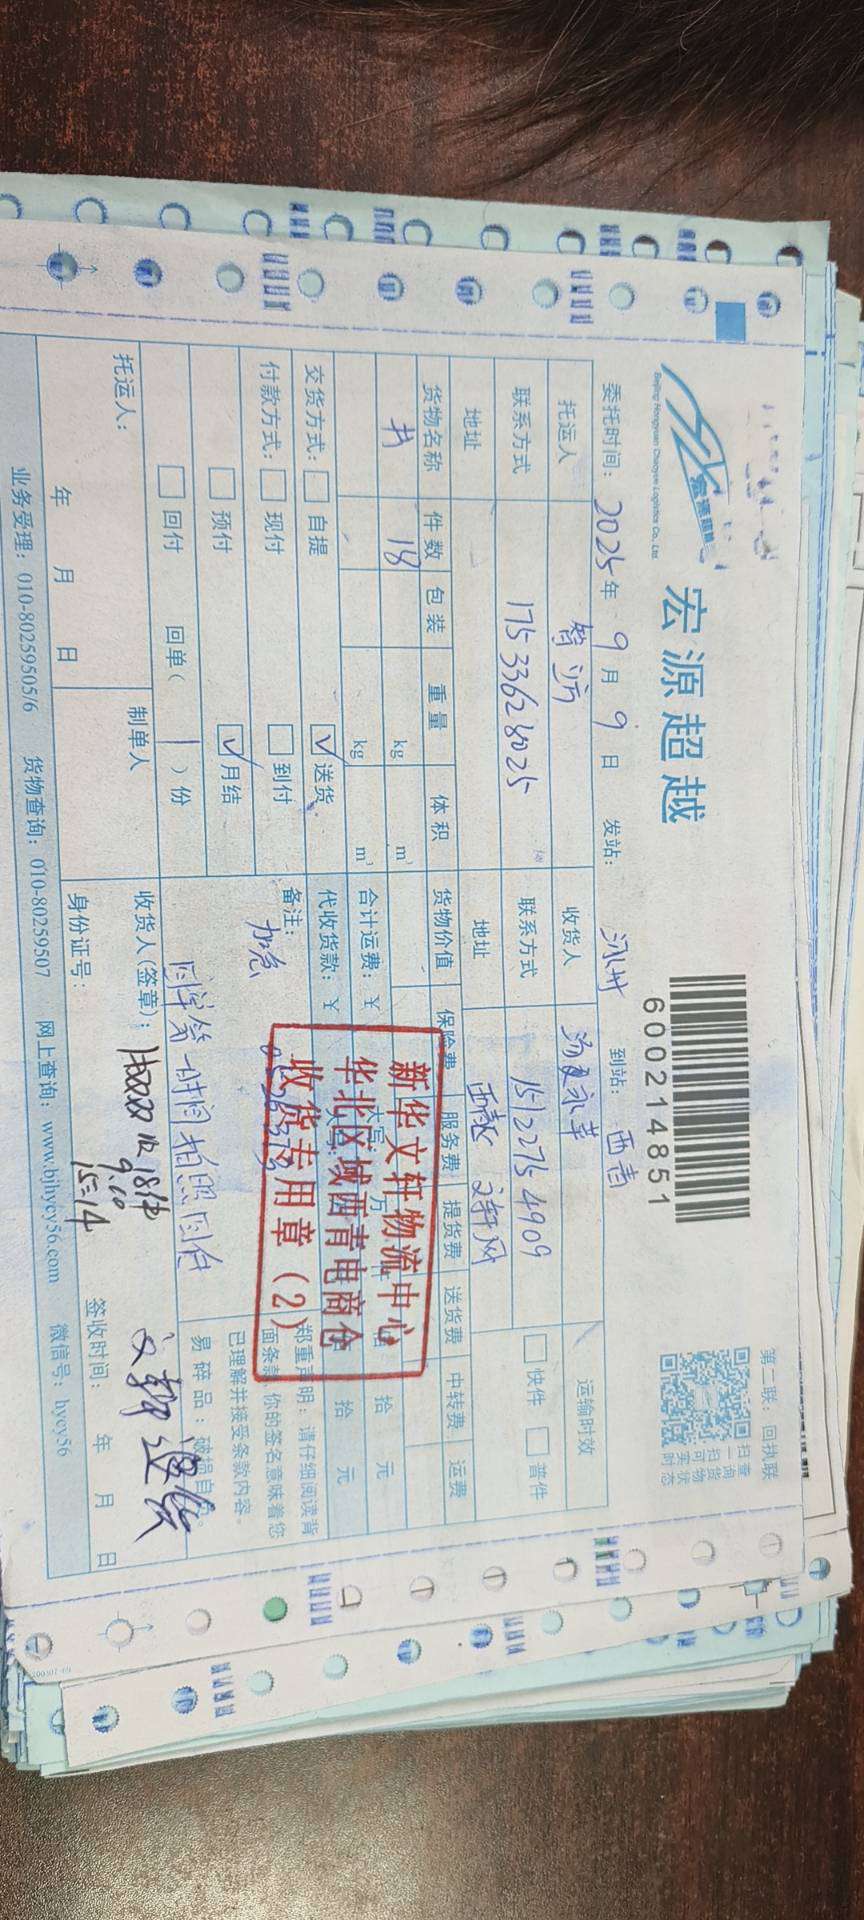 宏源超越
Beijing Hongyuan Chaoyue Logistics Co., Ltd
600214851
第二联：回执联
扫一扫可实时
查询货物状态
委托时间：2025年9月9日 发站： 到站：西青
托运人 智沂 收货人 运输时效
联系方式 17533628025 联系方式 15122754909 快件 普件
地址 地址 西青 文轩网
货物名称 件数 包装 重量 体积 货物价值 保险费 服务费 提货费 送货费 中转费 运费
书 18 kg m³ 合计运费：¥ 大写 万 仟 佰 拾 元
kg m³ 代收货款：¥ 拾 元
交货方式： 自提 送货 备注：
加急
付款方式： 现付 到付
预付 月结
回付 回单（1）份
回单第一时间拍照回传
新华文轩物流中心
华北区域西青电商仓
收货专用章（2）
郑重声明：请仔细阅读背
面条款，你的签名意味着您
已理解并接受条款内容。
易碎品：破损自
托运人： 制单人 收货人（签章）：
18件
9.10
15:14
年 月 日 身份证号： 签收时间： 年 月 日
业务受理：010-80259505/6 货物查询：010-80259507 网上查询：www.bjhycy56.com 微信号：hycy56